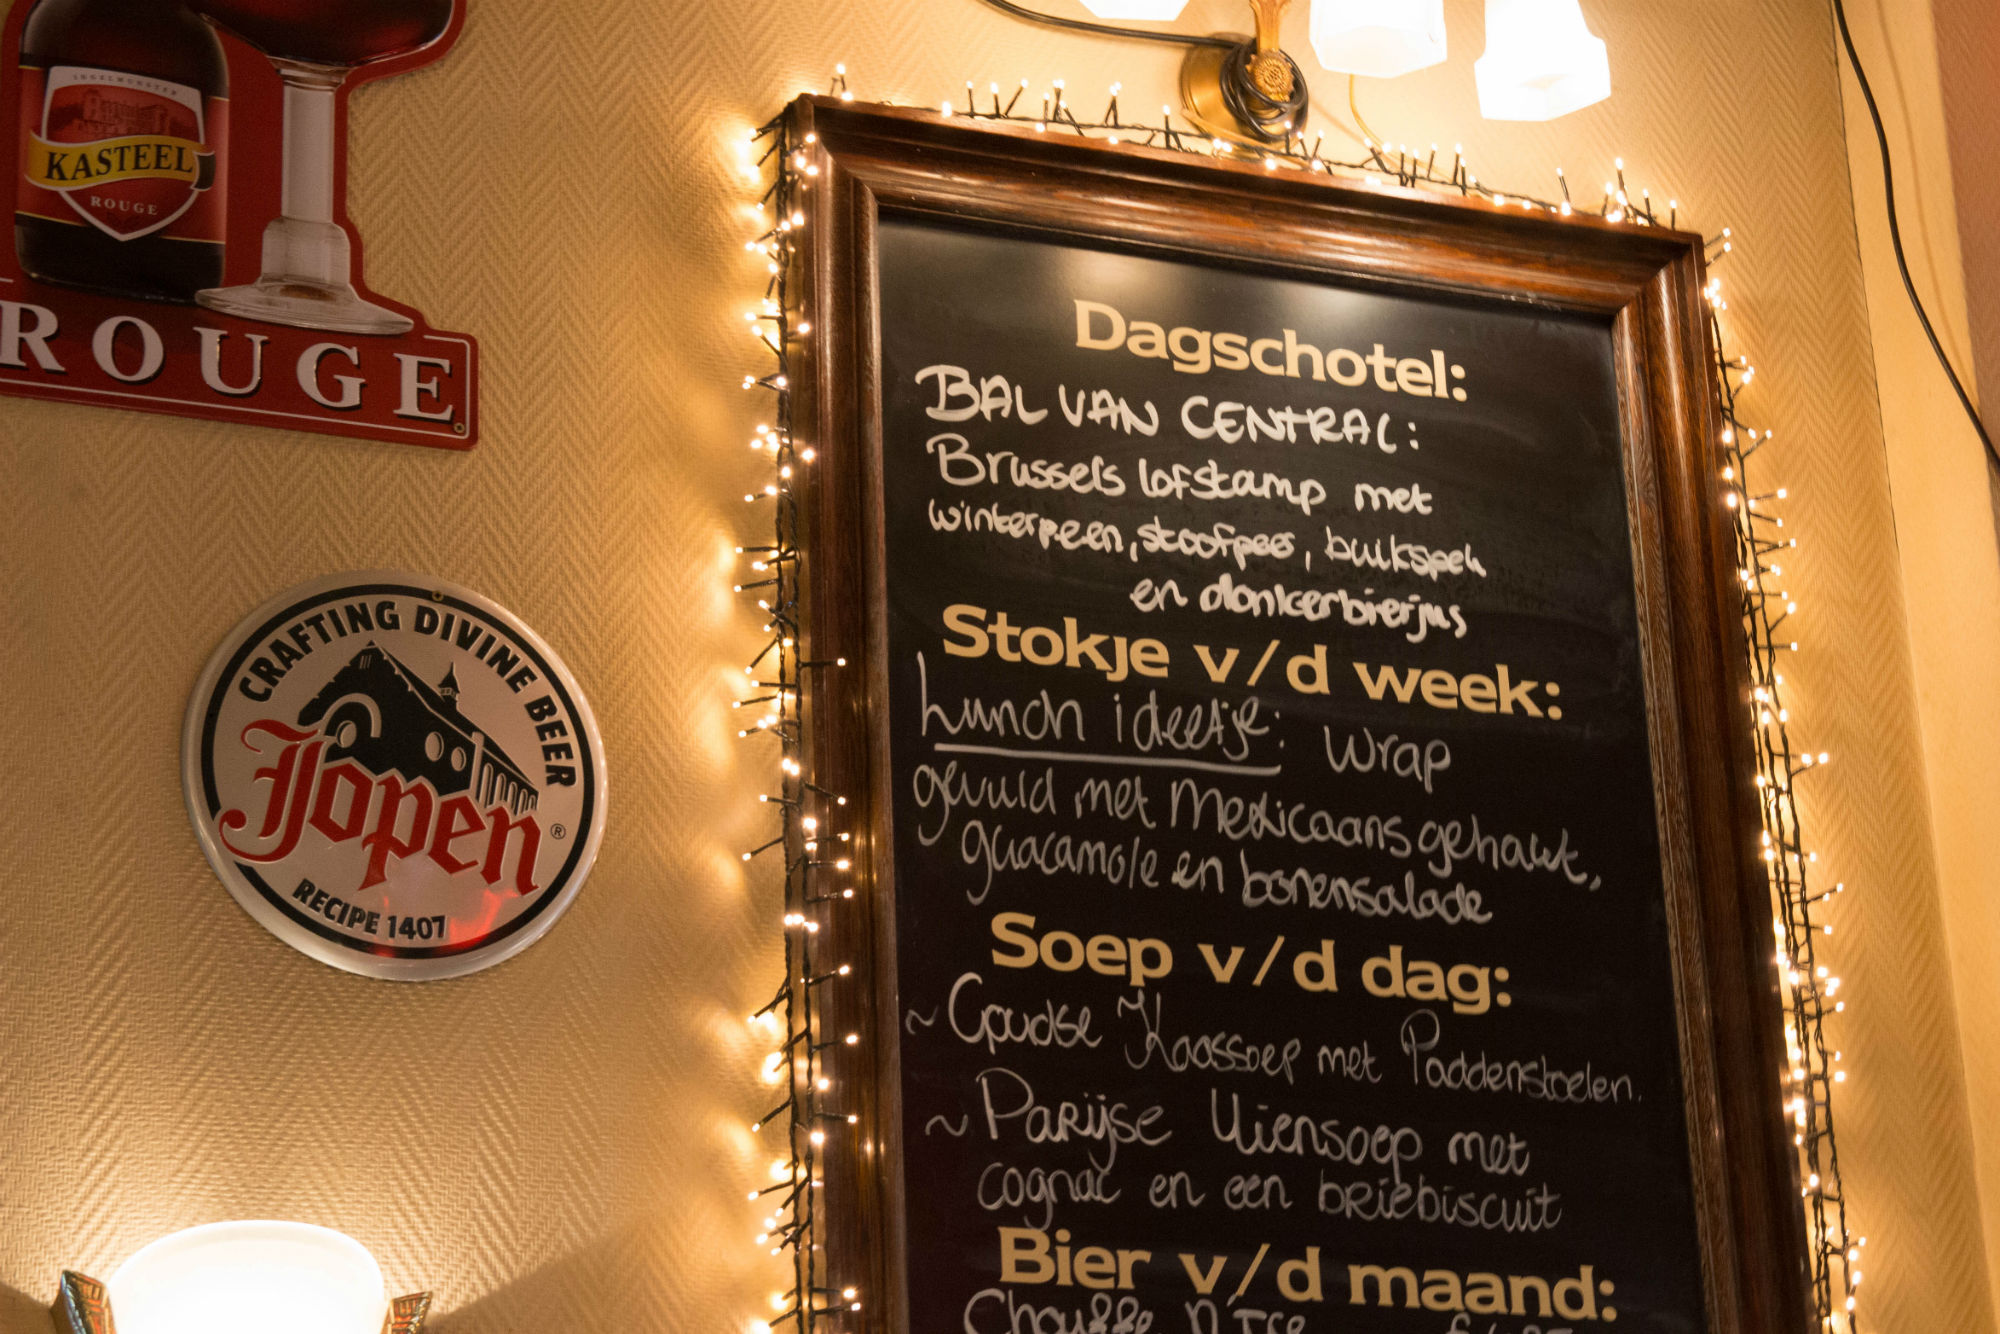 INGELMUNSTER
KASTEEL
ROUGE
ROUGE
CRAFTING DIVINE BEER
Jopen
®
RECIPE 1407
Dagschotel:
BAL VAN CENTRAL:
Brussels lofstamp met
winterpeen, stoofpeer, buikspek
en donkerbierjus
Stokje v/d week:
Lunch ideetje: Wrap
gevuld met Mexicaans gehakt,
guacamole en bonensalade
Soep v/d dag:
~ Goudse Kaassoep met Paddenstoelen.
~ Parijse Uiensoep met
cognac en een briebiscuit
Bier v/d maand:
Chouffe N'Ice